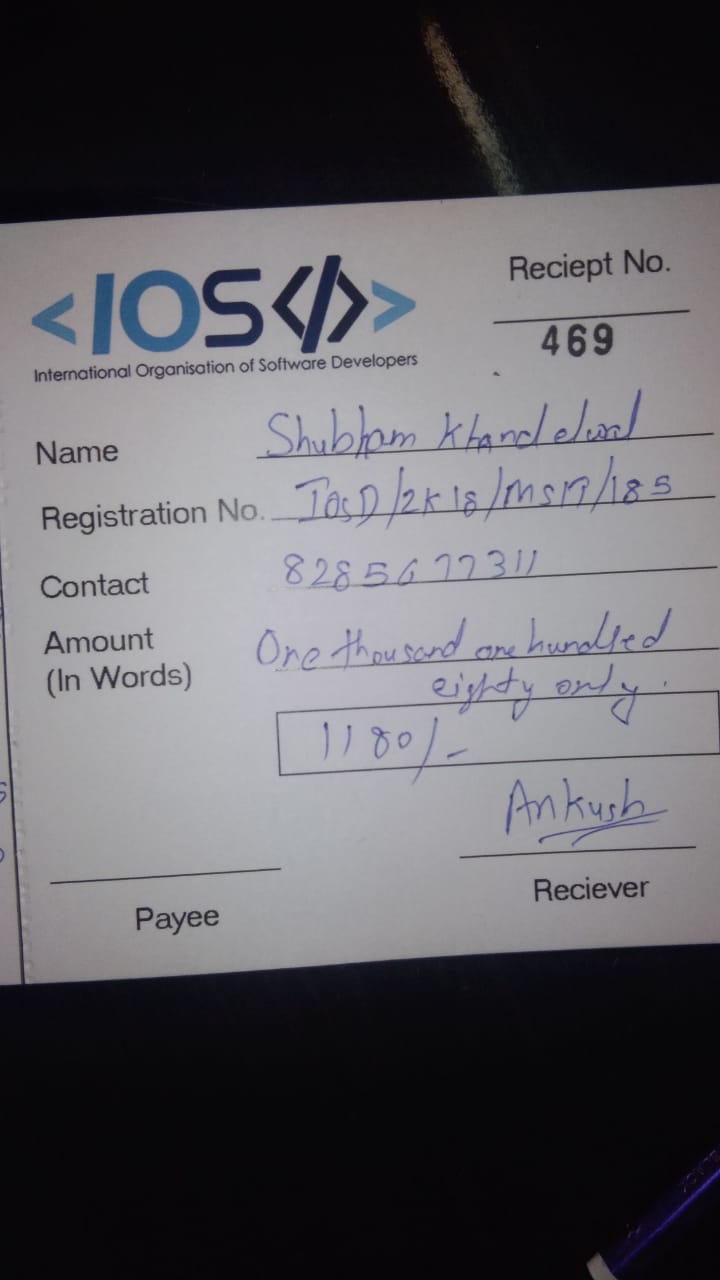 <IOS</>>
International Organisation of Software Developers
Reciept No.
469
Name Shubham Khandelwal
Registration No. IOSD/2K18/MSIT/185
Contact 8285677311
Amount (In Words) One thousand one hundred
eighty only.
1180/-
Ankush
Payee
Reciever